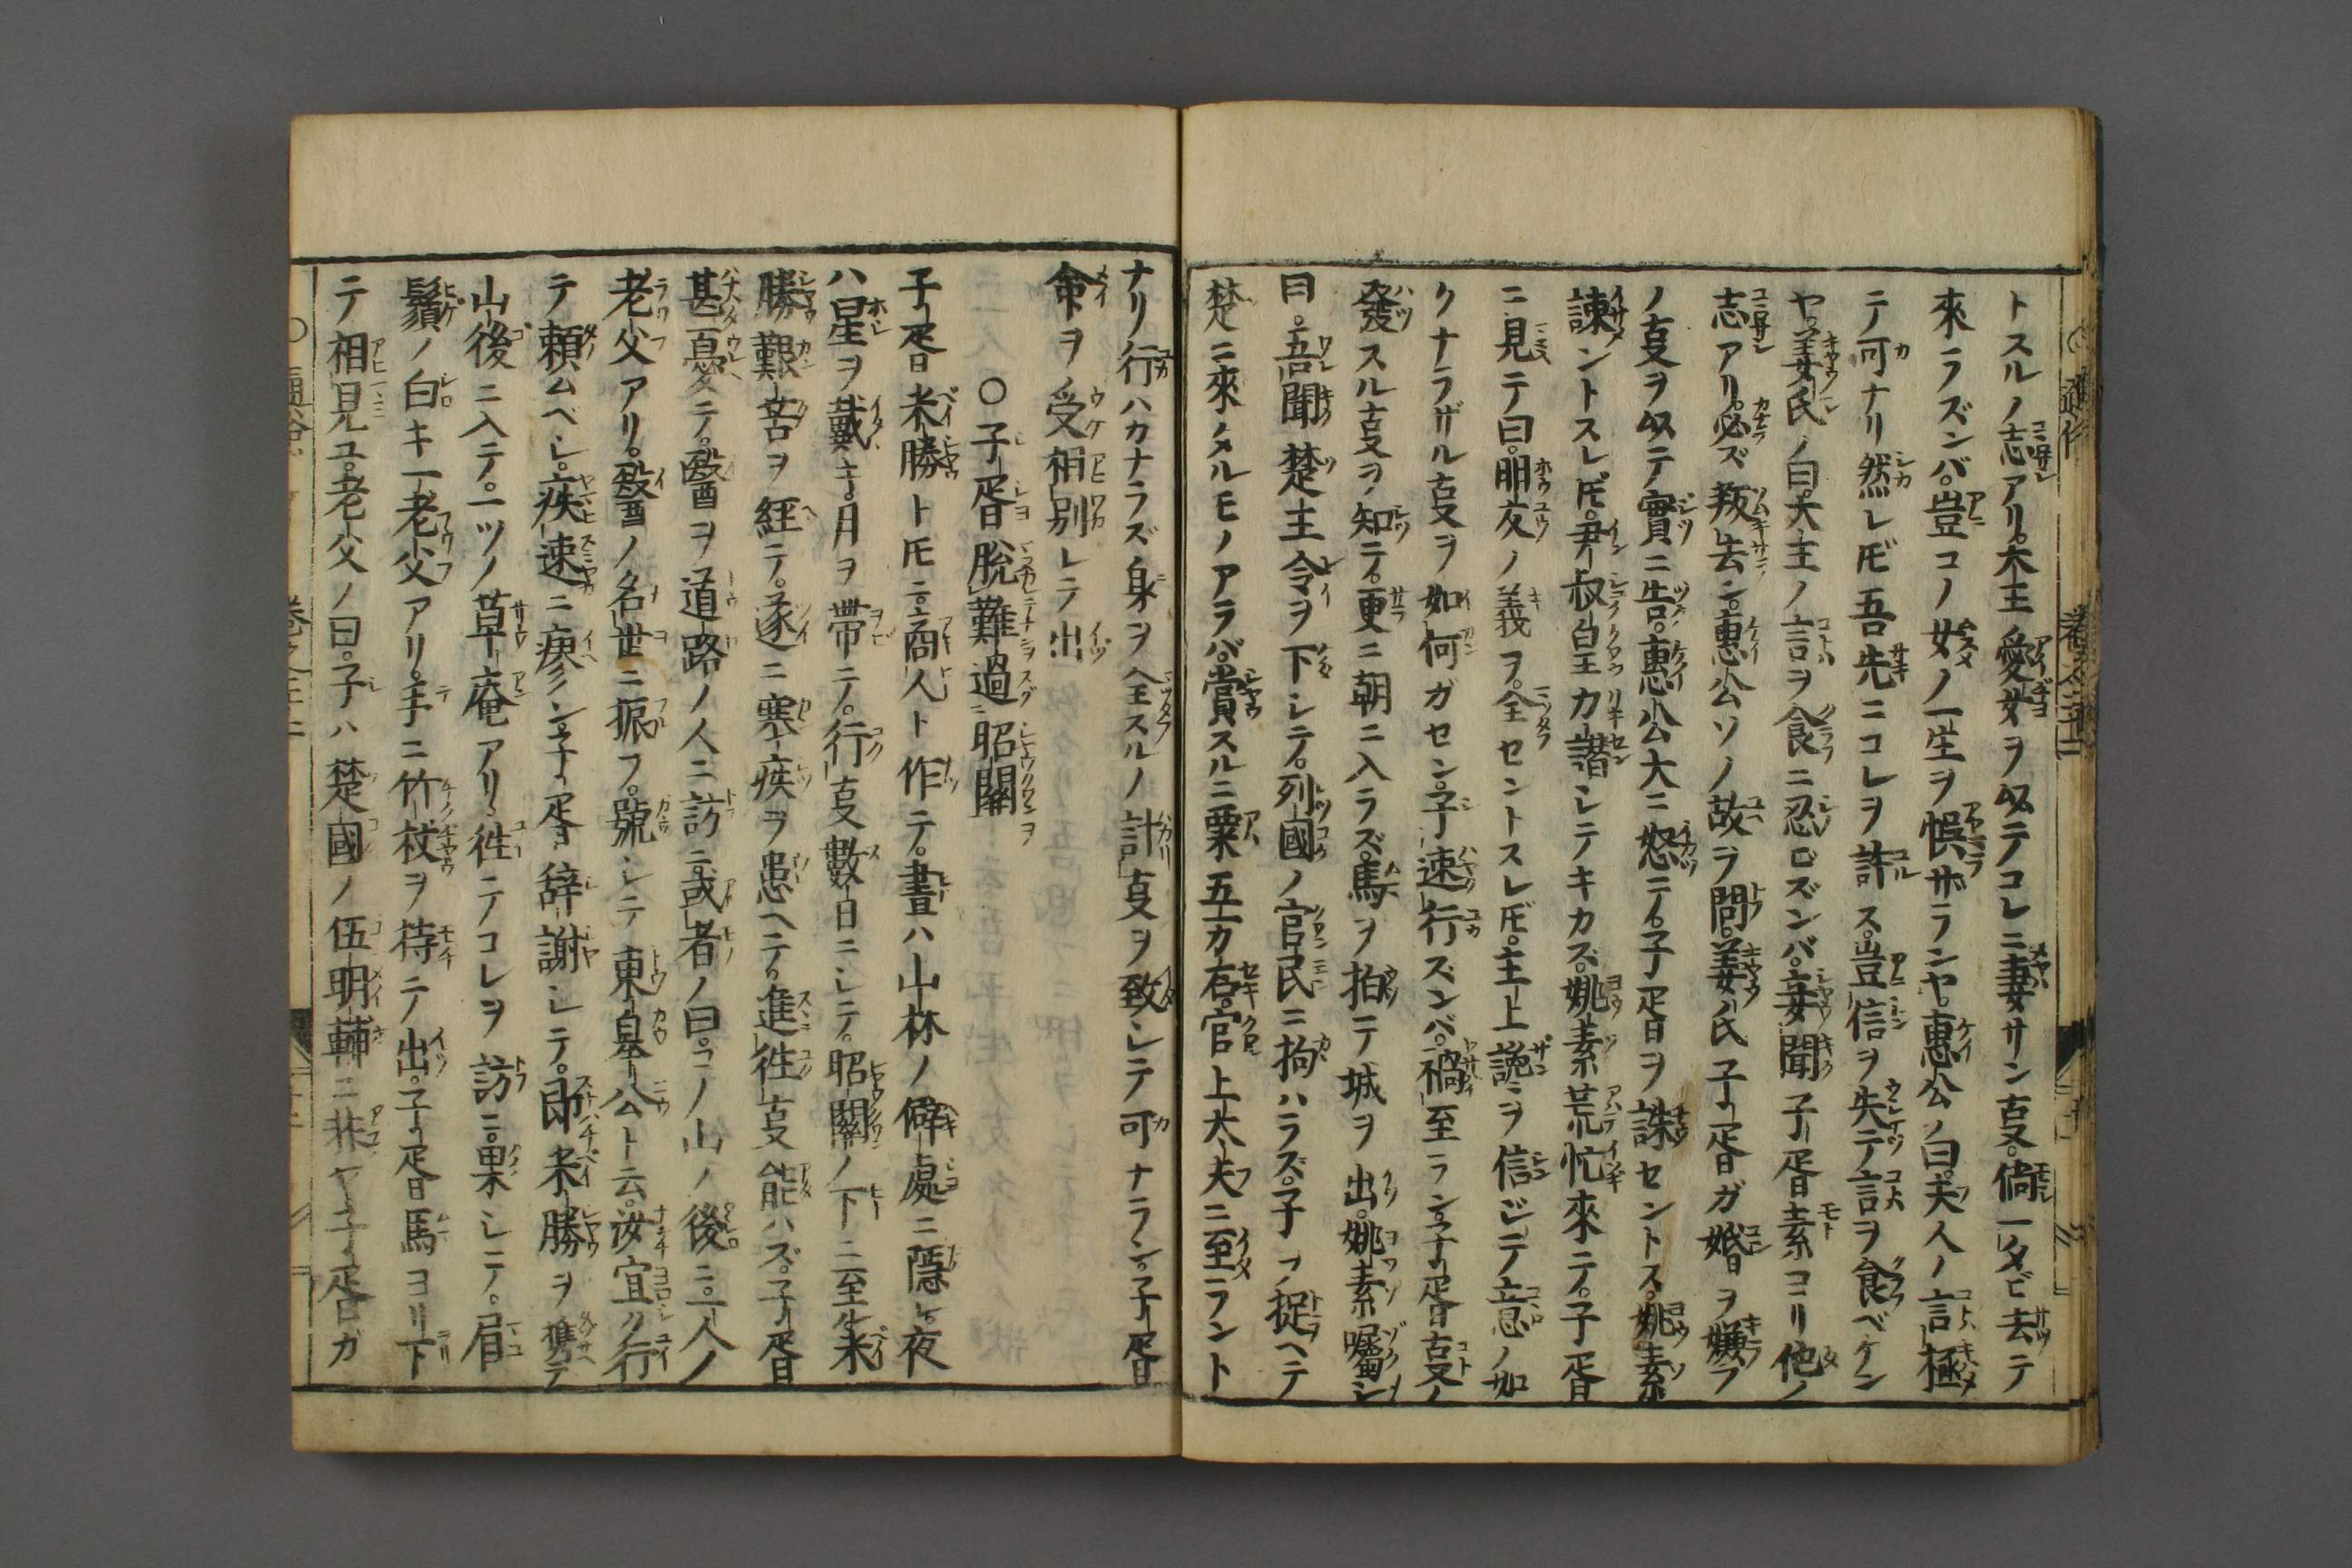 トスルノ志アリ。大王愛女ヲ以テコレニ妻サン叓。倘一タビ去テ
來ラズンバ。豈コノ女ノ一生ヲ悞ザランヤ。惠公ノ曰。夫人ノ言極
テ可ナリ然レ𪜈吾先ニコレヲ許ス。豈信ヲ失テ言ヲ食ベケン
ヤ。姜氏ノ曰。大主ノ言ヲ食ニ忍ビズンバ。妾聞子胥素コリ他ノ
志アリ。必ズ叛去ン。惠公ソノ故ヲ問。姜氏子胥ガ婚ヲ嫌フ
ノ叓ヲ以テ實ニ告。惠公大ニ怒テ。子胥ヲ誅セントス。姚素
諫ントスレ𪜈。尹叔皇カ譖シテキカズ。姚素荒忙來テ。子胥
ニ見テ曰。朋友ノ義ヲ。全セントスレ𪜈。主上讒ヲ信ジテ意ノ如
クナラザル叓ヲ如何ガセン。子速行ズンバ。禍至ラン。子胥叓ノ
發スル叓ヲ知テ。更ニ朝ニ入ラズ。馬ヲ拍テ城ヲ出。姚素囑シ
曰。吾聞楚王令ヲ下シテ。列國ノ官民ニ拘ハラズ。子ヲ捉ヘテ
楚ニ來タルモノアラバ。賞スルニ粟五万石。官上大夫ニ至ラント
ナリ行ハカナラズ身ヲ全スルノ計叓ヲ致シテ可ナラン。子胥
命ヲ受相別レテ出
○子胥脫難過昭關
子胥米勝ト𪜈ニ商人ト作テ。晝ハ山林ノ僻處ニ隱レ夜
ハ星ヲ戴キ。月ヲ帶テ。行叓數日ニシテ。昭關ノ下ニ至ル米
勝艱苦ヲ經テ。遂ニ寒疾ヲ患ヘテ。進徃叓能ハズ。子胥
甚憂テ。醫ヲ道路ノ人ニ訪ニ。或者ノ曰。コノ山ノ後ニ一人ノ
老父アリ。醫ノ名世ニ振フ。號シテ東皐公ト云。汝宜ク行
テ頼ムベシ。疾速ニ痊ン。子胥辭謝シテ。即米勝ヲ携テ
山後ニ入テ。一ツノ草庵アリ。徃テコレヲ訪ニ。果シテ。眉
鬚ノ白キ一老父アリ。手ニ竹杖ヲ待テ出。子胥馬ヨリ下
テ相見ユ。老父ノ曰。子ハ楚國ノ伍明輔ニ非ヤ子胥ガ